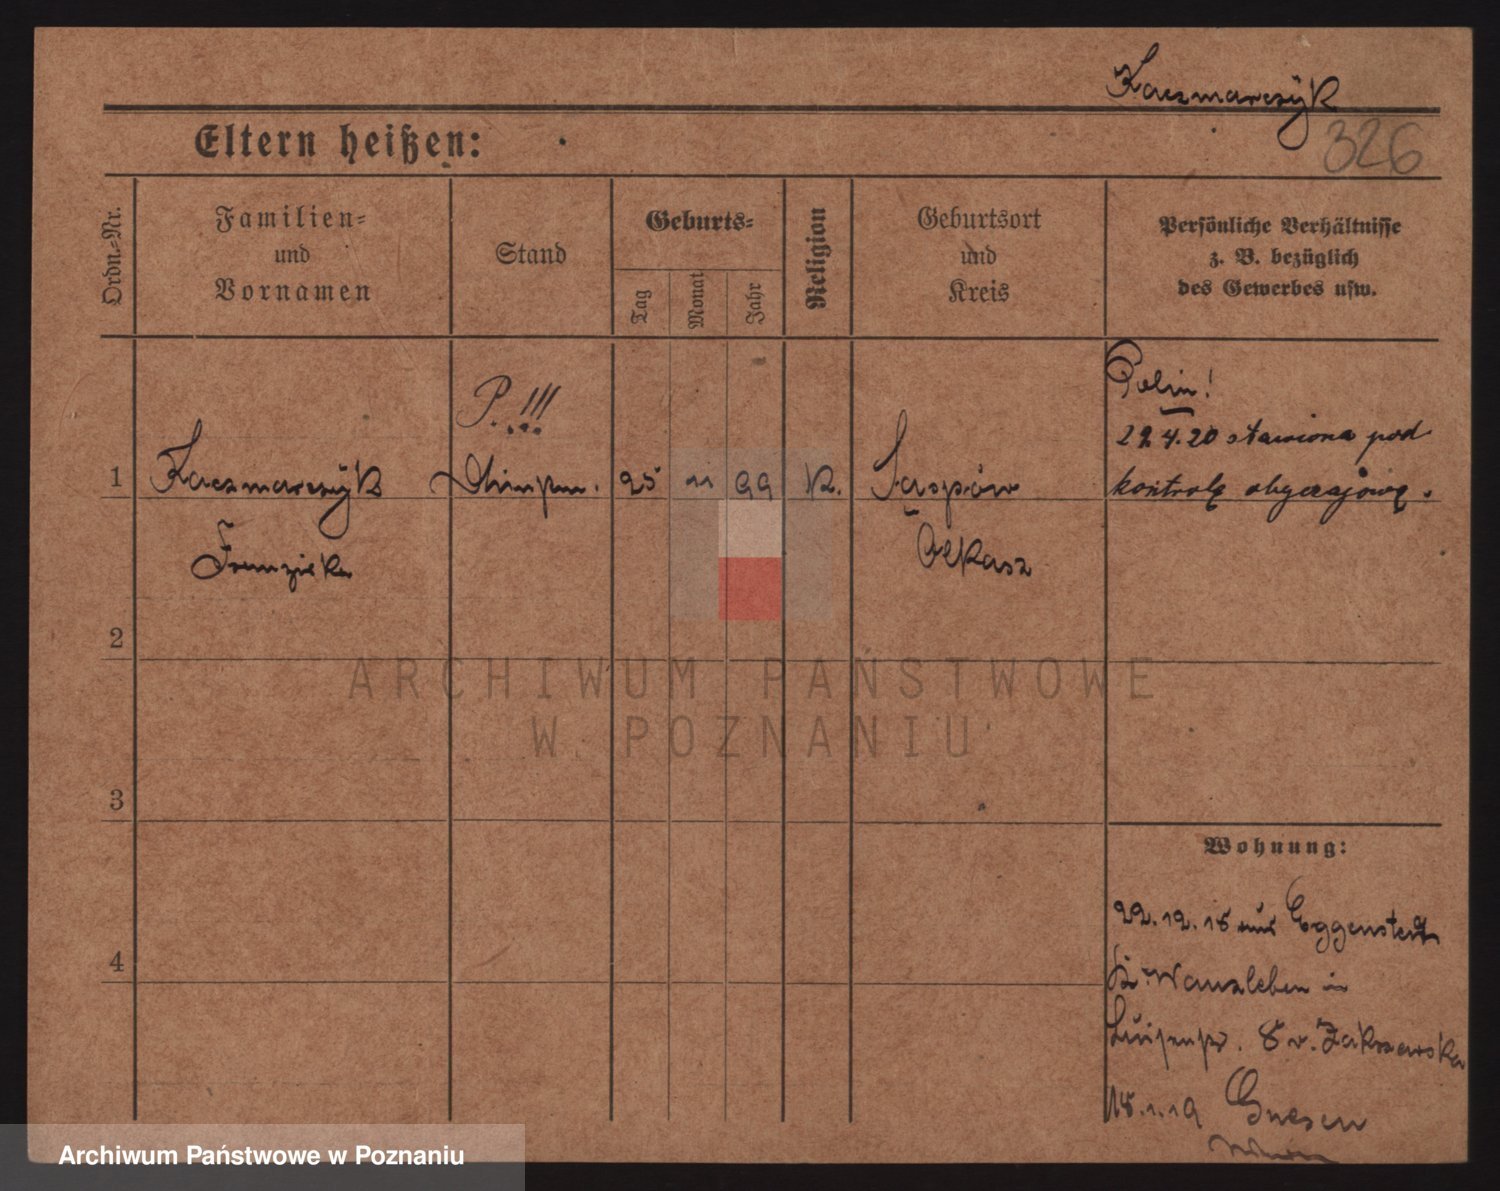 Kaczmarczÿk
Eltern heißen:
326
Ordn.-Nr.
Familien-
und
Vornamen
Stand
Geburts-
Tag
Monat
Jahr
Religion
Geburtsort
und
Kreis
Persönliche Verhältnisse
z. B. bezüglich
des Gewerbes usw.
P. !!!
Polin!
22.4.20 stawiona pod
kontrolę obyczajową.
1 Kaczmarczÿk 25 11 99 K. Sąspów
Franziska Olkusz
2
3
4
Wohnung:
22.12.18 aus Eggenstedt
Kr. Wanzleben in
Luisenstr. 8 v. Zakrzewska
18.1.19 Gnesen
ARCHIWUM PAŃSTWOWE
W POZNANIU
Archiwum Państwowe w Poznaniu